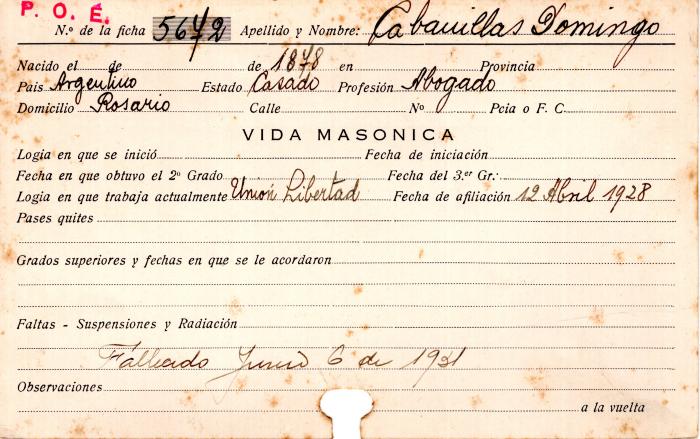 P. O. E.
N.º de la ficha 5672 Apellido y Nombre: Cabanillas Domingo
Nacido el de de 1878 en Provincia
Pais Argentino Estado Casado Profesión Abogado
Domicilio Rosario Calle Nº Pcia o F. C.
VIDA MASONICA
Logia en que se inició Fecha de iniciación
Fecha en que obtuvo el 2º Grado Fecha del 3.er Gr.:
Logia en que trabaja actualmente Unión Libertad Fecha de afiliación 12 Abril 1928
Pases quites
Grados superiores y fechas en que se le acordaron
Faltas - Suspensiones y Radiación
Fallecido Junio 6 de 1931
Observaciones
a la vuelta